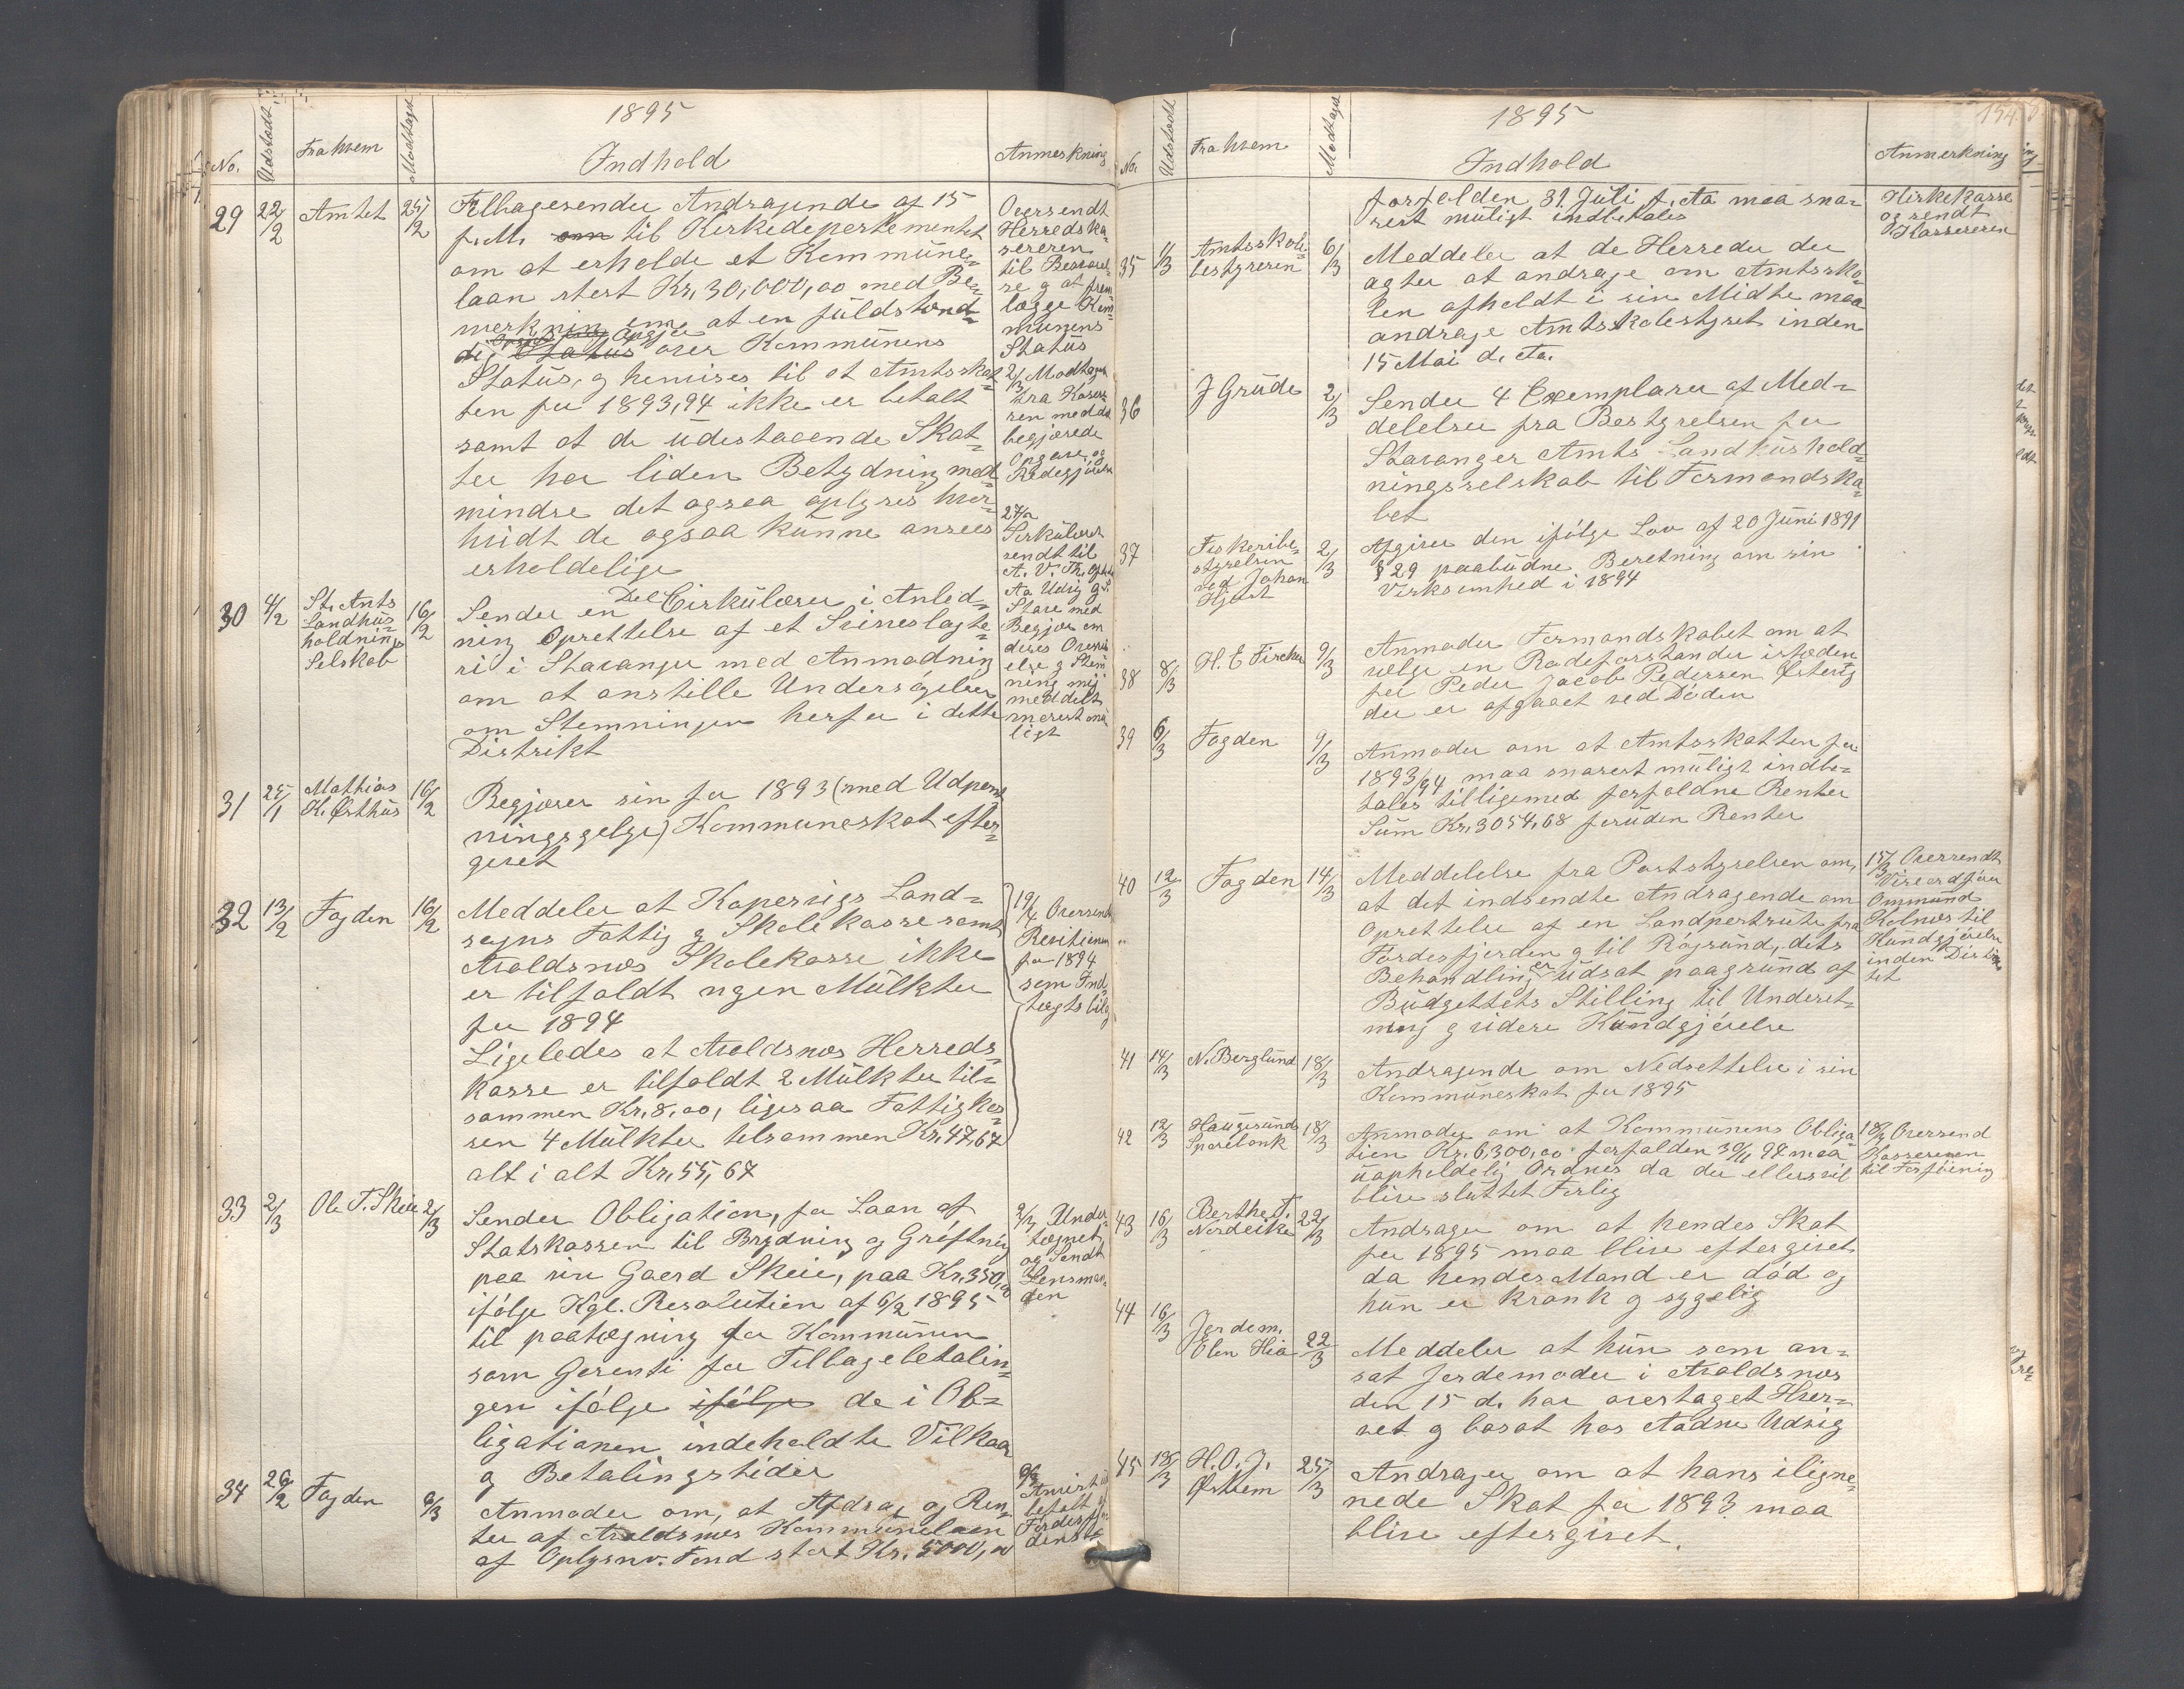 1895
No. Udstedt Fra hvem Modtaget Indhold Anmerkning
29 22/2 Amtet 25/2
Tilbagesender Andragende af 15
f. M. om til Kirkedepartementet
om at erholde et Kommune-
laan stort Kr. 30,000,00 med Be-
merkning om, at en fuldstænd-
dig Status over Kommunens
Status, og henvises til at Amtsskat-
ten for 1893,94 ikke er betalt
samt at de udestaaende Skat-
ter har liden Betydning med
mindre det ogsaa oplyses hvor-
hvidt de ogsaa kunne ansees
erholdelige
Oversendt
Herredska-
sereren
til Besvarel-
se og at frem-
lægge Kom-
munens
Status
2/3 Modtaget
fra Kasse-
ren med de
begjærede
Opgave og
Redegjørelse
30 4/2 St. Amts
Landhus-
holdnings
Selskab
16/2
Sender en Del Cirkulærer i Anled-
ning Oprettelse af et Svineslagte-
ri i Stavanger med Anmodning
om at anstille Undersøgelser
om Stemningen herfor i dette
Distrikt
27/2
Sirkulæret
sendt til
A. V. Th.
Aa Udvig g S.
Stave med
Begjær om
deres
og Stem
ning mij
meddelt
snarest mu
ligt
31 25/1 Mathias
K. Østhus
16/2
Begjærer sin for 1893 (med Udpant-
ningsgelge) Kommuneskat efter-
givet
32 13/2 Fogden 16/2
Meddeler at Kopervigs Land-
sogns Fattig og Skolekasse samt
Avaldsnæs Skolekasse ikke
er tilfaldt ngen Mulkter
for 1894
Ligeledes at Avaldsnæs Herreds-
kasse er tilfaldt 2 Mulkter til-
sammen Kr. 8,00, ligesaa Fattigkas-
sen 4 Mulkter telsammen Kr. 47,67
alt i alt Kr. 55,67
19/4 Oversendt
Revisionen
for 1894
som Ind
tægtsbilg
33 2/3 Ole T. Skeie 2/3
Sender Obligation, for Laan af
Statskassen til Brydning og Grøftning
paa sin Gaard Skeie, paa Kr. 350,00
ifølge Kgl. Resolution af 6/2 1895
til paategning for Kommunen
som Garanti for Tilbagebetalin-
gen ifølge ifølge de i Ob-
ligationen indeholdte Vilkaar
og Betalingstider
2/3 Under
tegnet
og Sendt
Lensman-
den
34 26/2 Fogden 6/3
Anmoder om, at Afdrag og Ren-
ter af Avaldsnæs Kommunelaan
af Oplysnv. Fond stort Kr. 5000,00
1895 154
No. Udstedt Fra hvem Modtaget Indhold Anmerkning
forfalden 31. Juli f. Aa maa sna-
rest muligt indbetales
Kirkekasse
og sendt
Kassereren
35 1/3 Amtsskole-
bestyreren
6/3
Meddeler at de Herreder der
agter at andrage om Amtssko-
len afholdt i sin Midte maa
andrage Amtsskolestyret inden
15 Mai d. Aa.
36 J Grude 2/3
Sender 4 Exemplarer af Med-
delelser fra Bestyrelsen for
Stavanger Amts Landhushold-
ningsselskab til Formandska-
bet
37 Fiskeribe-
styrelsen
ved Johan
Hjort
2/3
Afgiver den ifølge Lov af 20 Juni 1891
§ 29 paabudne Beretning om sin
Virksomhed i 1894
38 8/3 H. E Fircher 9/3
Anmoder Formandskabet om at
vælge en Rodeforstander istæden
for Peder Jacob Pedersen Østevig
der er afgaaet ved Døden
39 6/3 Fogden 9/3
Anmoder om at Amtsskatten for
1893/94 maa snarest muligt indbe-
tales tilligemed forfaldne Renter
Sum Kr. 3054,68 foruden Renter
40 12/3 Fogden 14/3
Meddelelse fra Poststyrelsen om,
at det indsendte Andragende om
Oprettelse af en Landpostrute fra
Førdesfjorden g til Røgsund, dets
Behandling er Udsat paagrund af
Budgettets Stilling til Underet-
ning g videre Kundgjørelse
15/3 Oversendt
Viseordfører
Ommund
Kolnæs til
Kundgjørelse
inden Distrik
tet
41 14/3 N. Berglund 18/3
Andragende om Nedsettelse i sin
Kommuneskat for 1895
42 12/3 Haugesunds
Sparebank
18/3
Anmoder om at Kommunens Obliga-
tion Kr. 6,300,00 forfalden 30/11 94 maa
uopholdelig Ordnes da der ellers vil
blive sluttet Forlig
18/3 Oversend
Kassereren
til Forføining
43 16/3 Berthe T.
Nordeike
22/3
Andrager om at hendes Skat
for 1895 maa blive eftergivet
da hendes Mand er død og
hun er krank g sygelig
44 16/3 Jordem.
Olen Hia
22/3
Meddeler at hun som an-
sat Jordemoder i Avaldsnæs
den 15 d. har overtaget Hver-
vet g bosat hos Aadne Udvig
45 13/3 H. O. J.
Østhem
25/3
Andrager om at hans iligne-
nede Skat for 1893 maa
blive eftergivet.